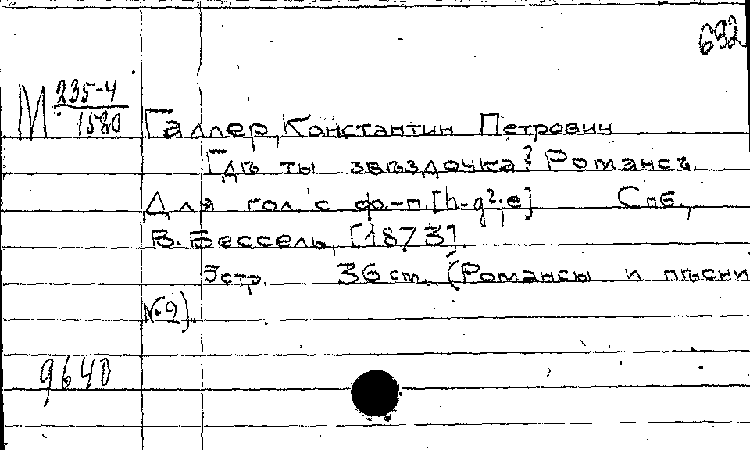 692
М 235-4
1580
Галлер, Константин Петрович
Гдѣ ты звѣздочка? Романсъ
Для гол. с ф-п. [h-g².e] Спб.,
В. Бессель, [1873].
5 стр. 36 ст. (Романсы и пѣсни
№ 9).
9640